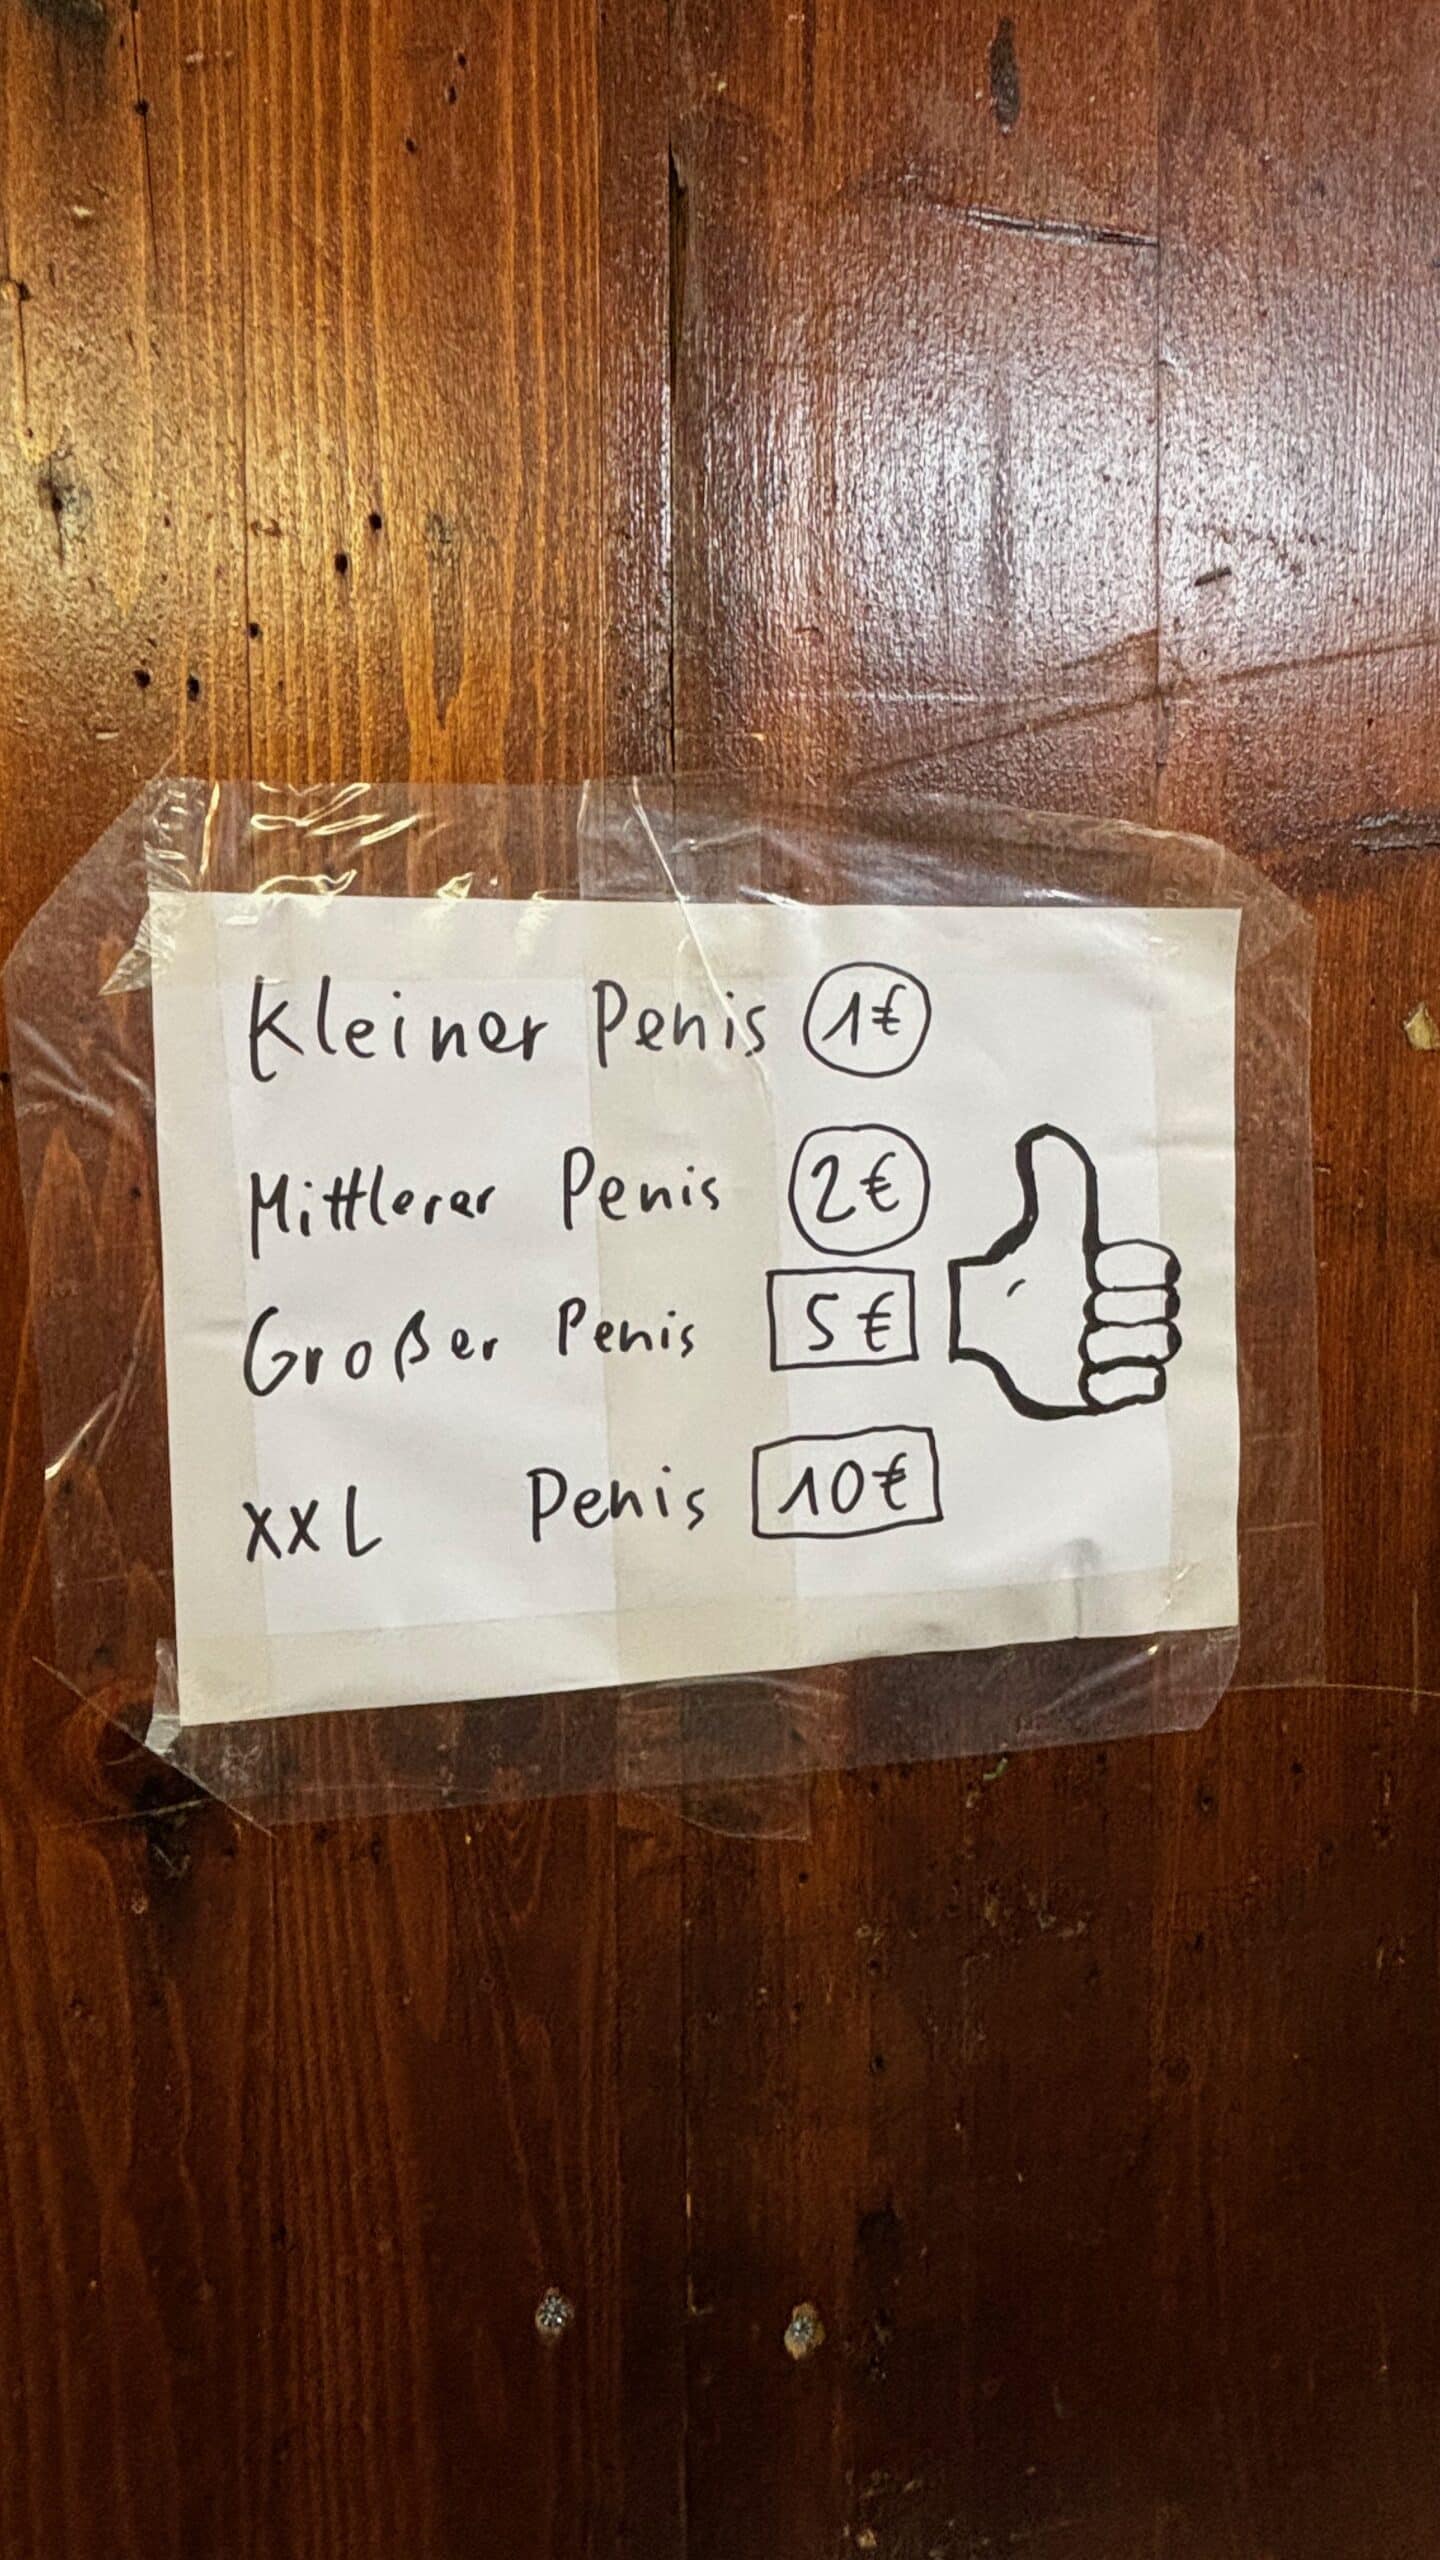 Kleiner Penis 1€
Mittlerer Penis 2€
Großer Penis 5€
XXL Penis 10€